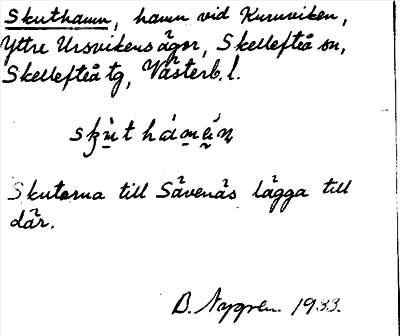 Skuthamn, hamn vid Kuruviken,
Yttre Ursvikens ägor, Skellefteå sn,
Skellefteå tg, Västerb. l.
Skutorna till Sävenäs lägga till
där.
B. Nygren 1933.